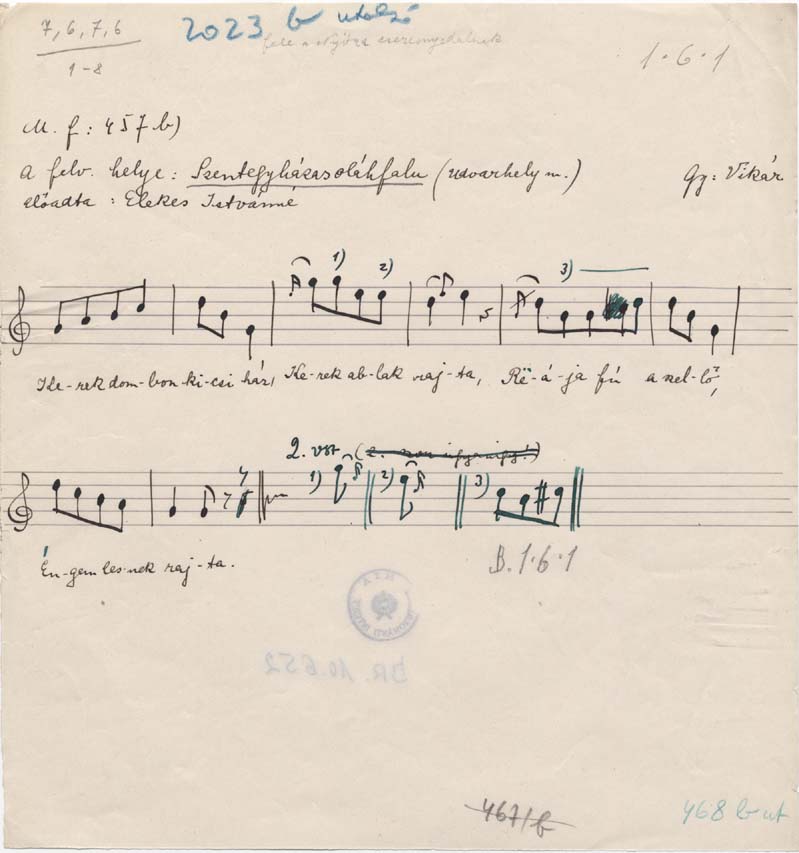 7, 6, 7, 6
1-8
2023 b utolsó
1·6·1
M. f: 457 b)
A felv. helye: Szentegyházasoláhfalu (Udvarhely m.) Gy: Vikár
előadta: Elekes Istvánné
1) 2) 3)
Ke-rek dom-bon ki-csi ház, Ke-rek ab-lak raj-ta, Rë-á-ja fú a szel-lő,
2. vsz
1) 2) 3)
Én-gem les-nek raj-ta.
B. 1·6·1
BR. 10.652
467/b
468 b ut